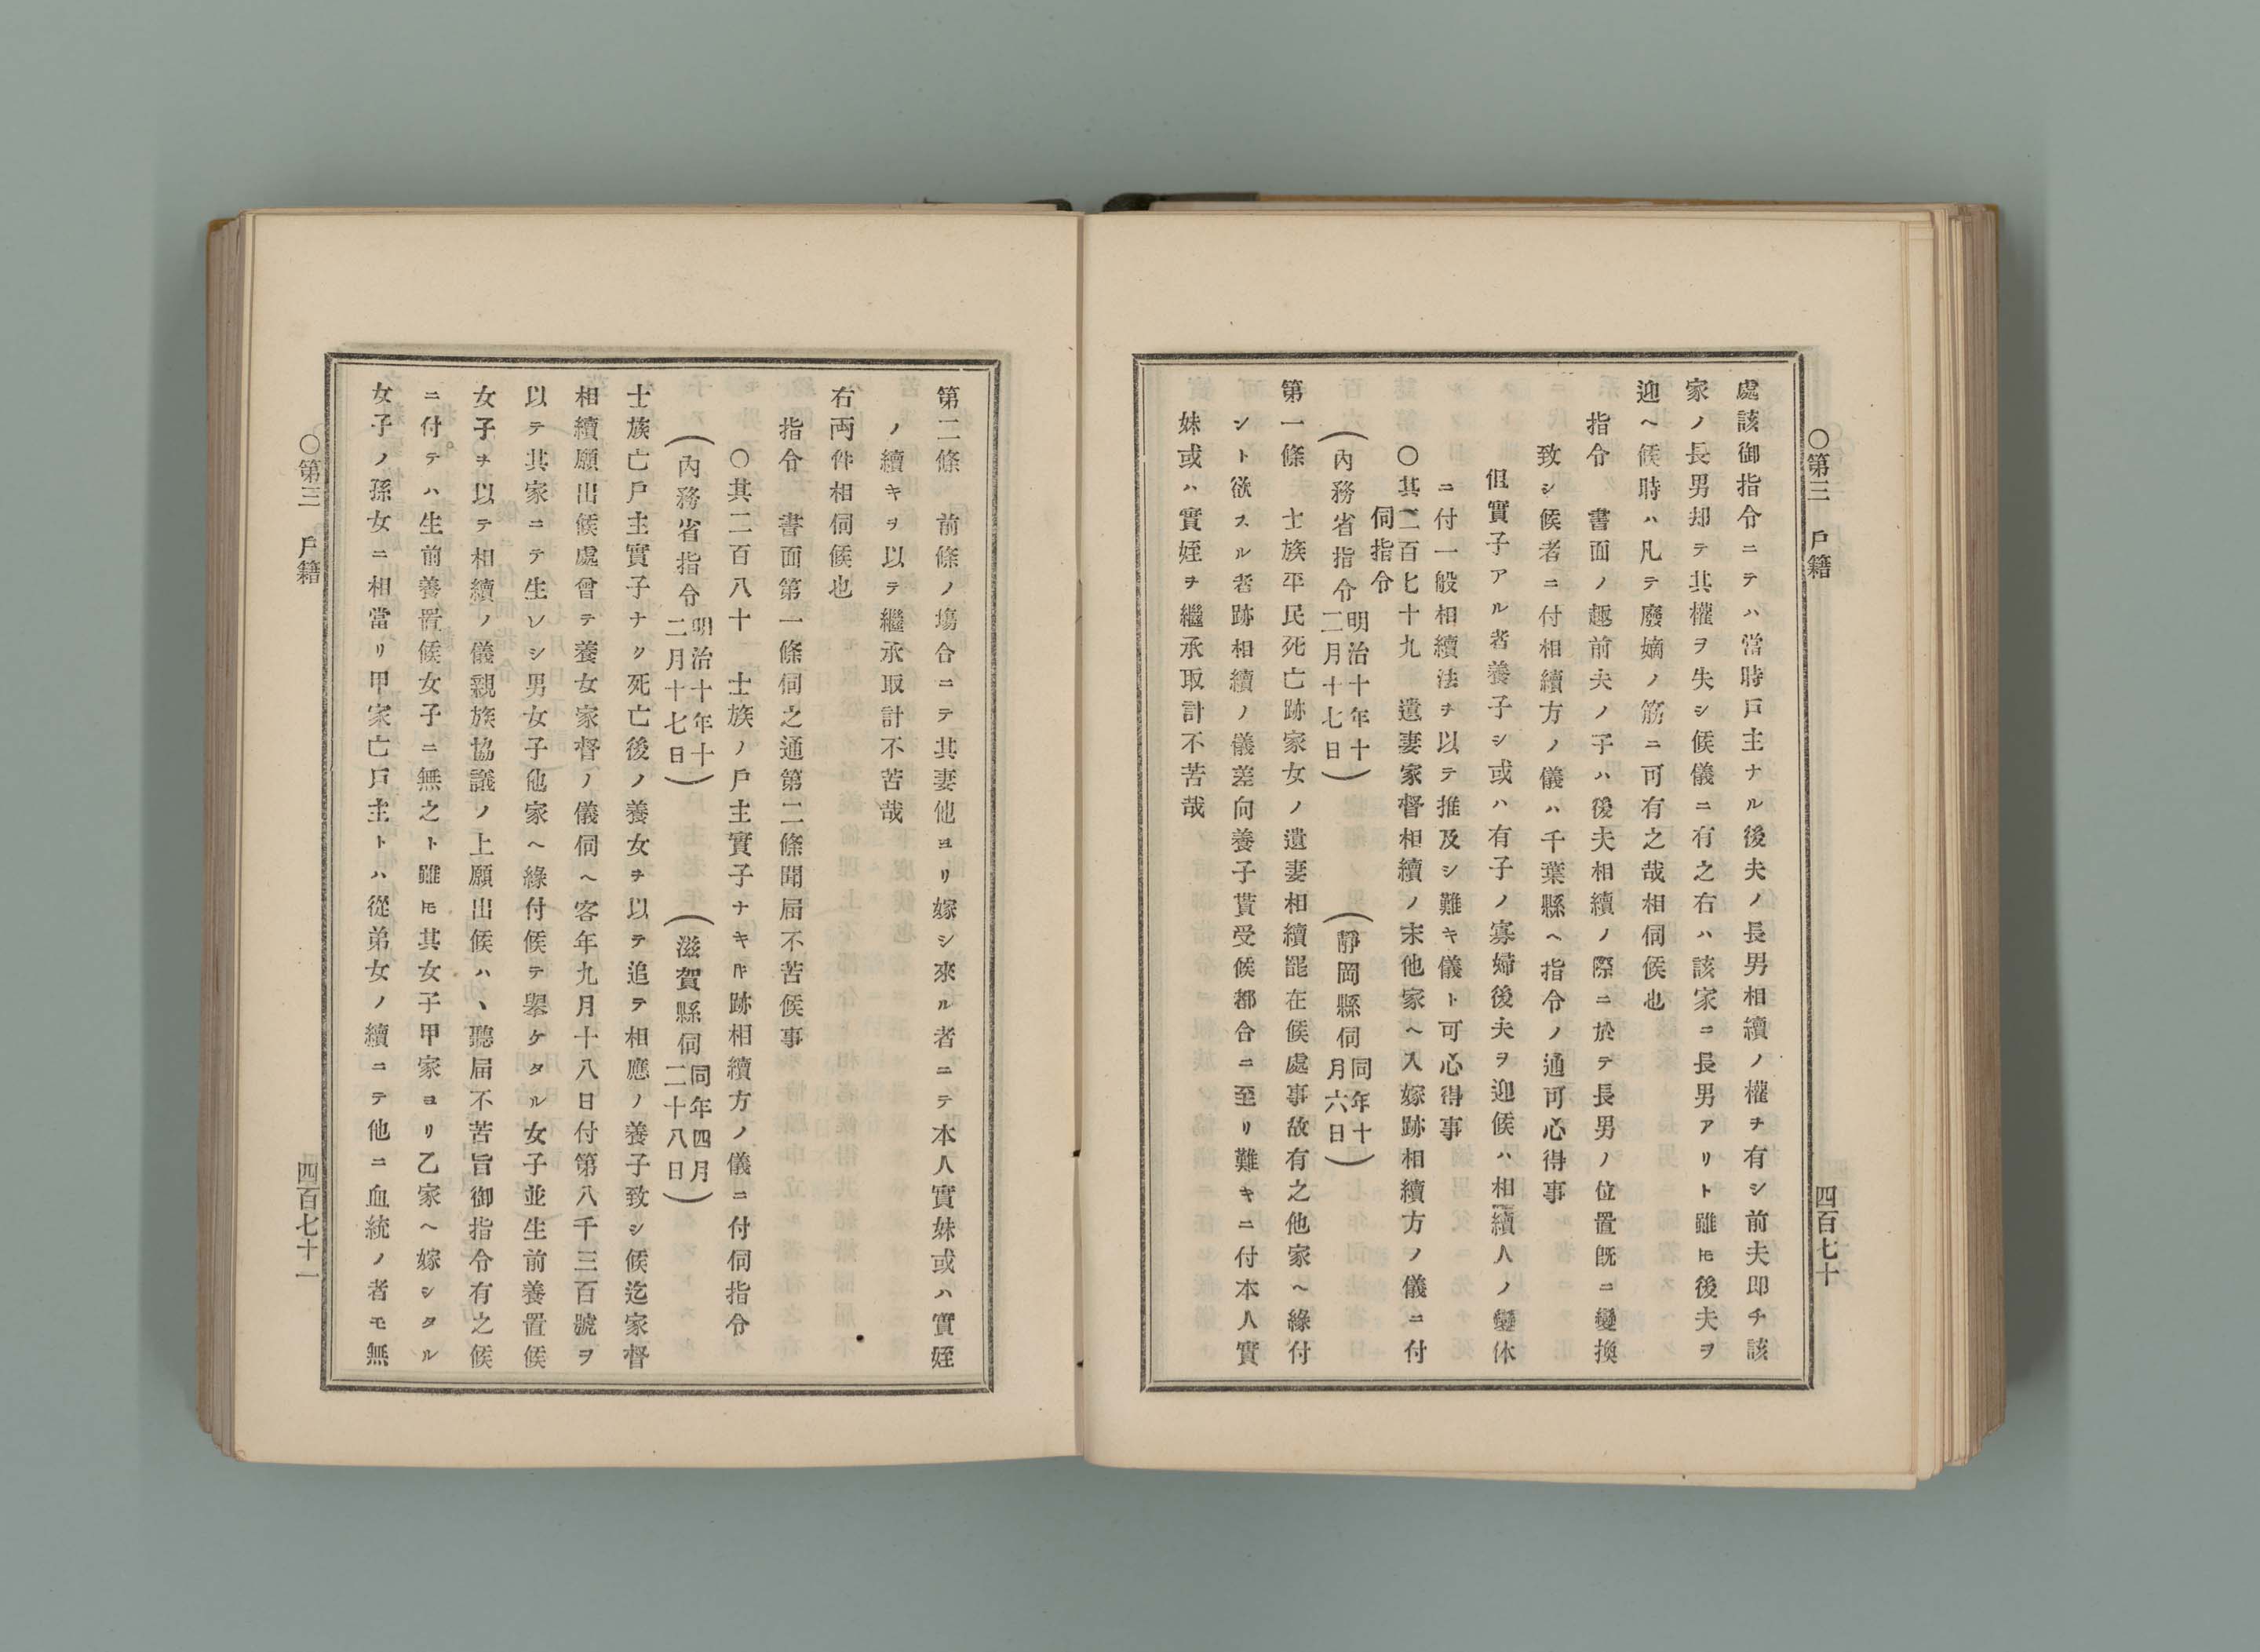 ○第三　戸籍　四百七十
處該御指令ニテハ當時戸主ナル後夫ノ長男相續ノ權ヲ有シ前夫即チ該
家ノ長男却テ其權ヲ失シ候儀ニ有之右ハ該家ニ長男アリト雖𪜈後夫ヲ
迎ヘ候時ハ凡テ廢嫡ノ筋ニ可有之哉相伺候也
指令　書面ノ趣前夫ノ子ハ後夫相續ノ際ニ於テ長男ノ位置既ニ變換
致シ候者ニ付相續方ノ儀ハ千葉縣ヘ指令ノ通可心得事
但實子アル者養子シ或ハ有子ノ寡婦後夫ヲ迎候ハ相續人ノ變体
ニ付一般相續法ヲ以テ推及シ難キ儀ト可心得事
○其二百七十九　遺妻家督相續ノ末他家ヘ入嫁跡相續方ノ儀ニ付
伺指令
（內務省指令明治十年十二月十七日）　（靜岡縣伺同年十月六日）
第一條　士族平民死亡跡家女ノ遺妻相續罷在候處事故有之他家ヘ緣付
シト欲スル者跡相續ノ儀差向養子貰受候都合ニ至リ難キニ付本人實
妹或ハ實姪ヲ繼承取計不苦哉
第二條　前條ノ塲合ニテ其妻他ヨリ嫁シ來ル者ニテ本人實妹或ハ實姪
ノ續キヲ以テ繼承取計不苦哉
右両件相伺候也
指令　書面第一條伺之通第二條聞届不苦候事
○其二百八十　士族ノ戸主實子ナキ𪜈跡相續方ノ儀ニ付伺指令
（內務省指令明治十年十二月十七日）　（滋賀縣伺同年四月二十八日）
士族亡戸主實子ナク死亡後ノ養女ヲ以テ追テ相應ノ養子致シ候迄家督
相續願出候處曾テ養女家督ノ儀伺ヘ客年九月十八日付第八千三百號ヲ
以テ其家ニテ生レシ男女子他家ヘ緣付候テ擧ケタル女子並生前養置候
女子ヲ以テ相續ノ儀親族協議ノ上願出候ハヽ聽届不苦旨御指令有之候
ニ付テハ生前養置候女子ニ無之ト雖𪜈其女子甲家ヨリ乙家ヘ嫁シタル
女子ノ孫女ニ相當リ甲家亡戸主トハ從弟女ノ續ニテ他ニ血統ノ者モ無
○第三　戸籍　四百七十一